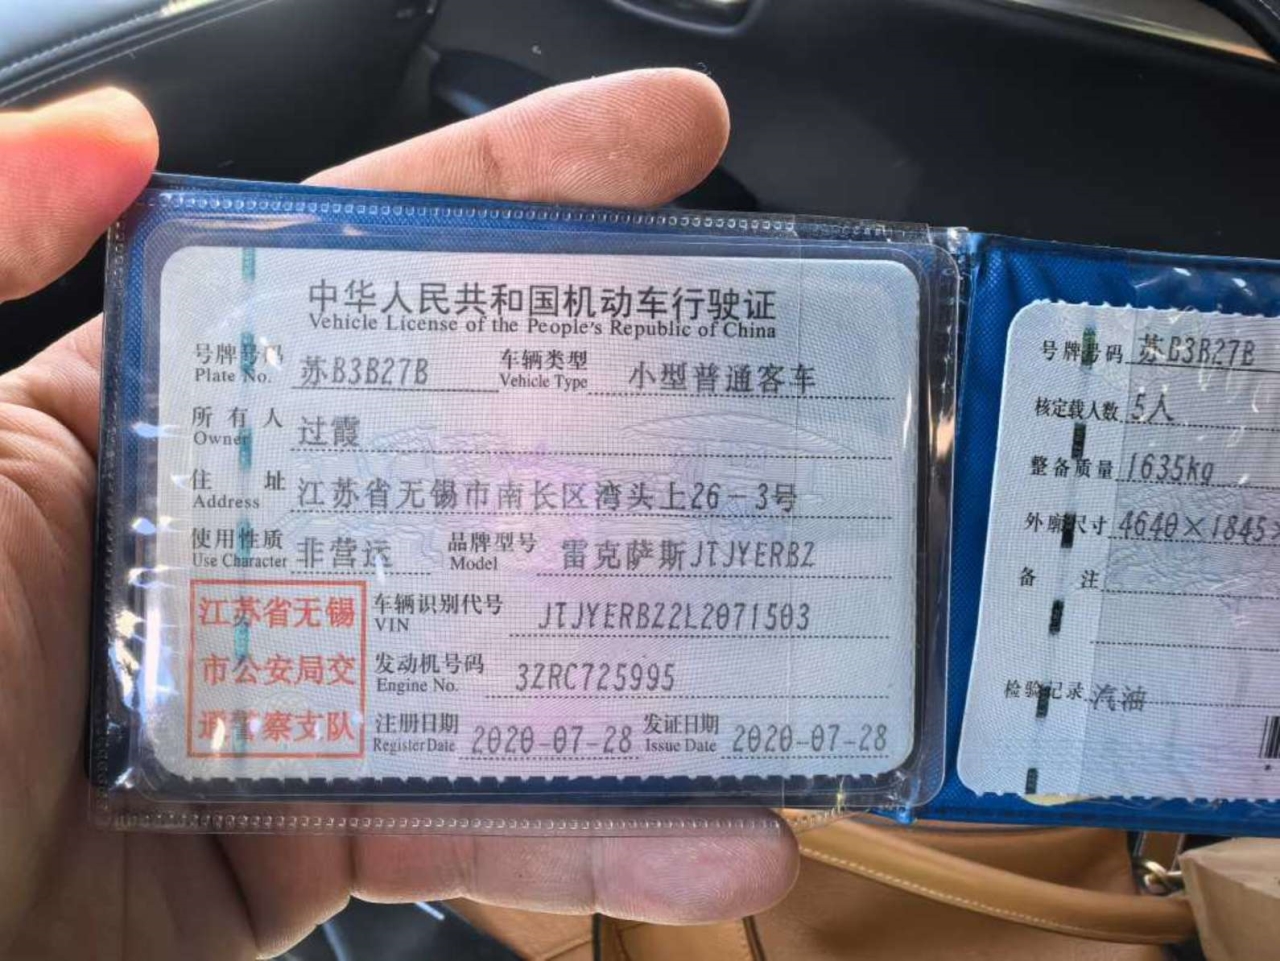 中华人民共和国机动车行驶证
Vehicle License of the People's Republic of China
号牌号码 苏B3B27B 车辆类型 小型普通客车
Plate No. Vehicle Type
所有人 过霞
Owner
住址 江苏省无锡市南长区湾头上26-3号
Address
使用性质 非营运 品牌型号 雷克萨斯JTJYERBZ
Use Character Model
江苏省无锡
市公安局交
通警察支队
车辆识别代号 JTJYERBZ2L2071503
VIN
发动机号码 3ZRC725995
Engine No.
注册日期 2020-07-28 发证日期 2020-07-28
Register Date Issue Date
号牌号码 苏B3B27B
核定载人数 5人
整备质量 1635kg
外廓尺寸 4640×1845×
备注
检验记录 汽油